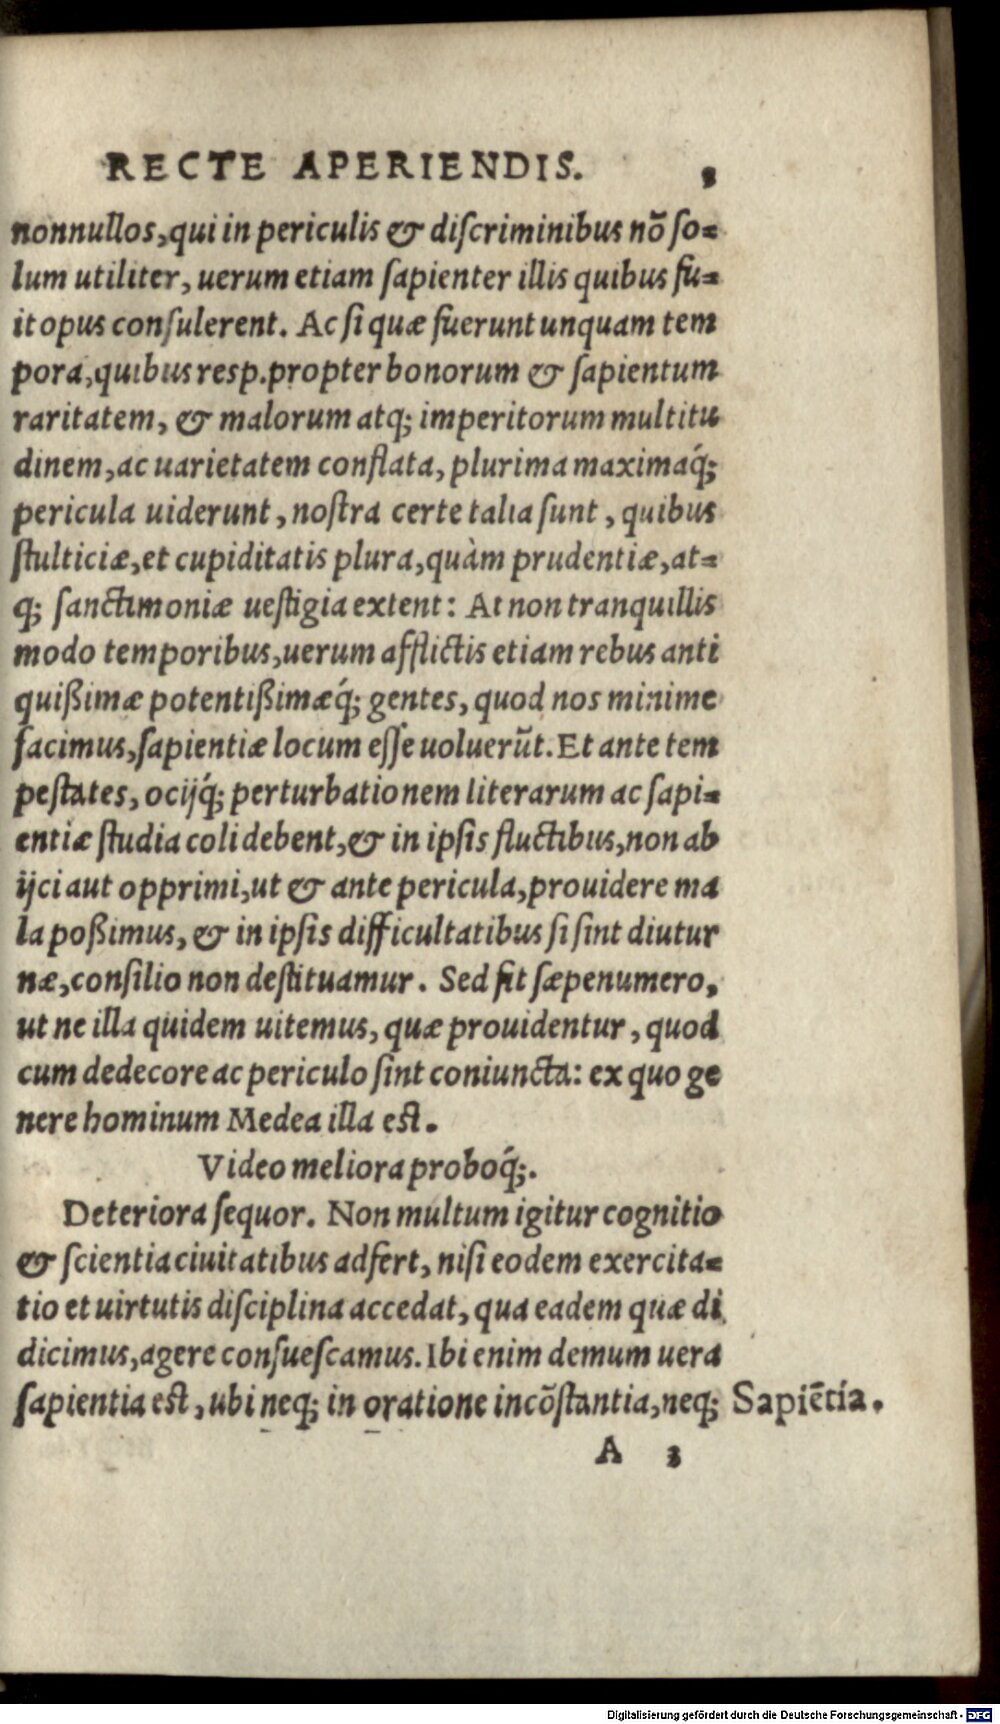 RECTE APERIENDIS. 3
nonnullos, qui in periculis & discriminibus nõ so=
lum utiliter, uerum etiam sapienter illis quibus fu=
it opus consulerent. Ac si quæ fuerunt unquam tem
pora, quibus resp. propter bonorum & sapientum
raritatem, & malorum atq; imperitorum multitu
dinem, ac uarietatem conflata, plurima maximaq́;
pericula uiderunt, nostra certe talia sunt, quibus
stulticiæ, et cupiditatis plura, quàm prudentiæ, at=
q; sanctimoniæ uestigia extent: At non tranquillis
modo temporibus, uerum afflictis etiam rebus anti
quißimæ potentißimæq́; gentes, quod nos minime
facimus, sapientiæ locum esse uoluerũt. Et ante tem
pestates, ocijq́; perturbationem literarum ac sapi=
entiæ studia coli debent, & in ipsis fluctibus, non ab
ijci aut opprimi, ut & ante pericula, prouidere ma
la poßimus, & in ipsis difficultatibus si sint diutur
næ, consilio non destituamur. Sed fit sæpenumero,
ut ne illa quidem uitemus, quæ prouidentur, quod
cum dedecore ac periculo sint coniuncta: ex quo ge
nere hominum Medea illa est.
Video meliora proboq́;.
Deteriora sequor. Non multum igitur cognitio
& scientia ciuitatibus adfert, nisi eodem exercita=
tio et uirtutis disciplina accedat, qua eadem quæ di
dicimus, agere consuescamus. Ibi enim demum uera
sapientia est, ubi neq; in oratione incõstantia, neq; Sapiẽtia.
A 3
Digitalisierung gefördert durch die Deutsche Forschungsgemeinschaft - DFG